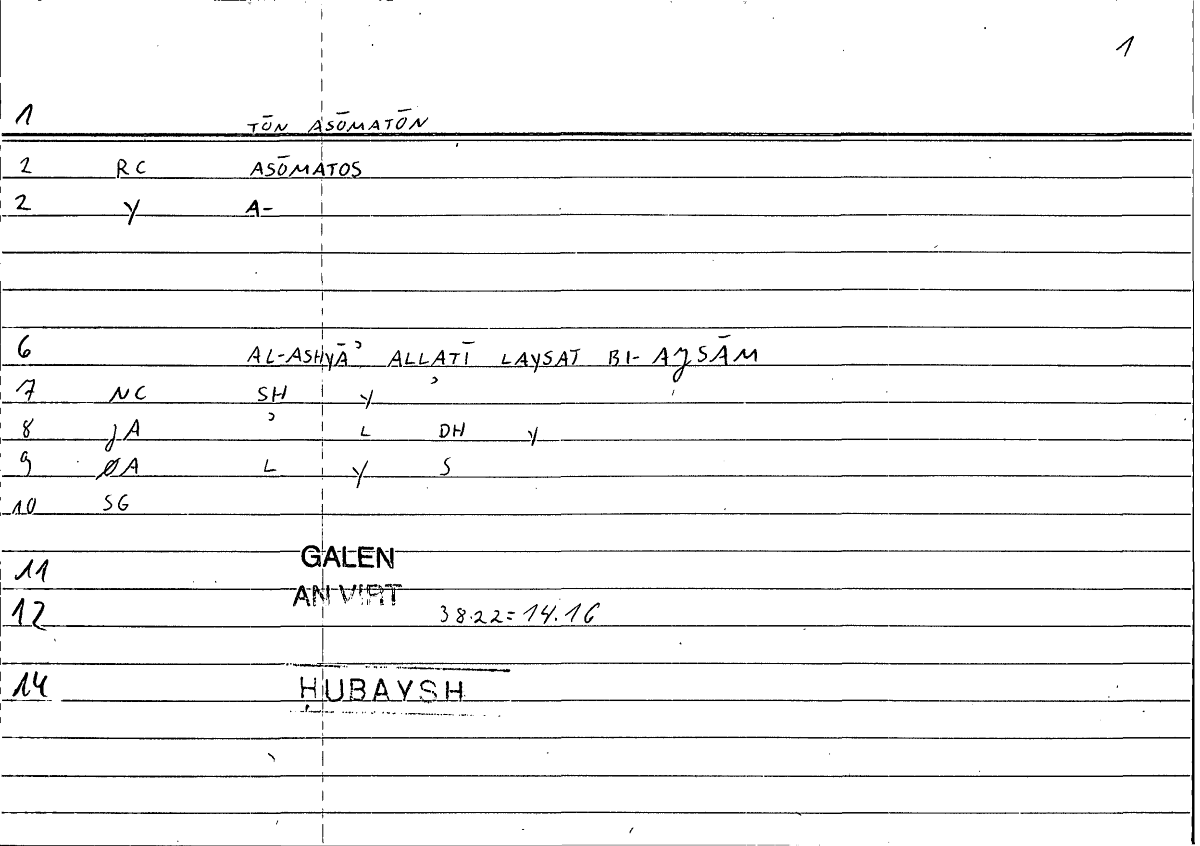 1
1 TŌN ASŌMATŌN
2 RC ASŌMATOS
2 Y A-
6 AL-ASHYĀʾ ALLATĪ LAYSAT BI- AJSĀM
7 NC SH Y ʾ
8 JA ʾ L DH Y
9 ØA L Y S
10 SG
11 GALEN
12 AN VIRT 38.22=14.16
14 ḤUBAYSH